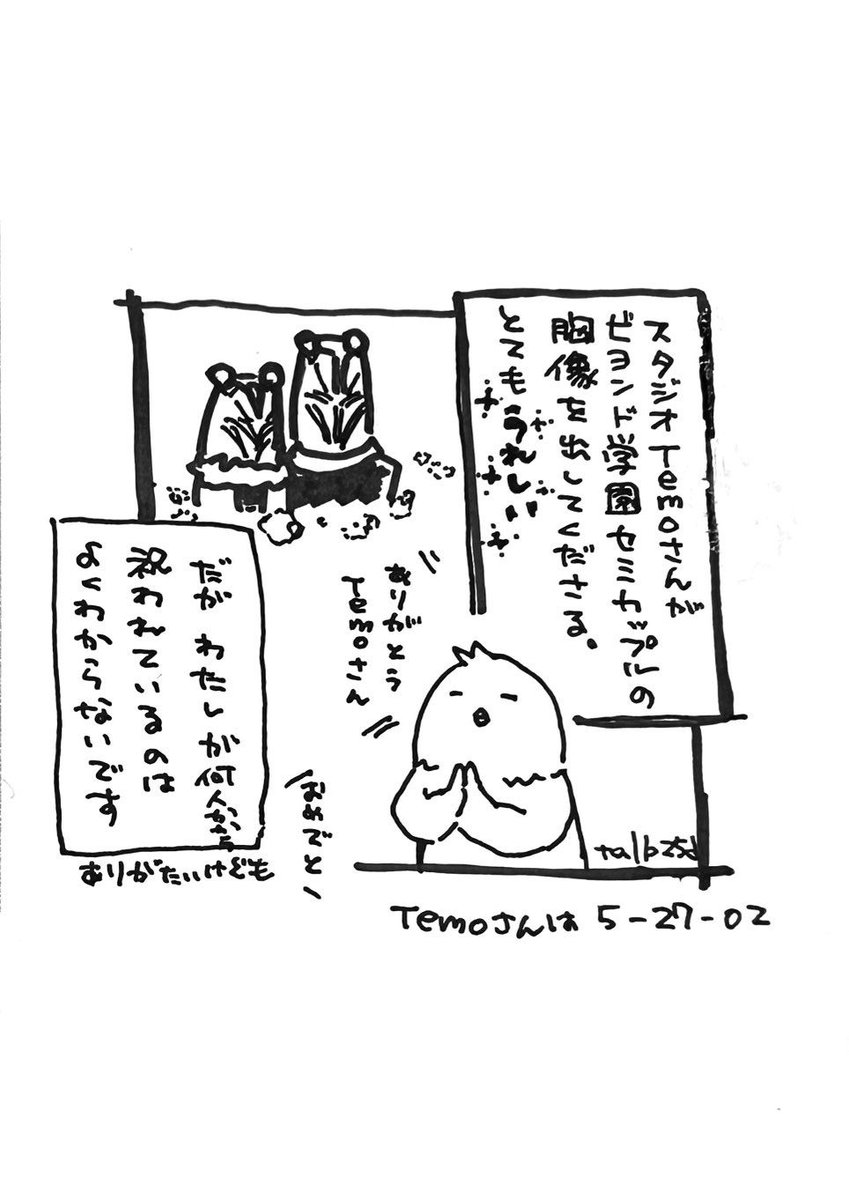 スタジオTemoさんが
ビヨンド学園セミカップルの
胸像を出してくださる。
とてもうれしい
ありがとう
Temoさん
だが わたしが何人かから
祝われているのは
よくわからないです
ありがたいけども
おめでとー
talbzsd
Temoさんは 5-27-02